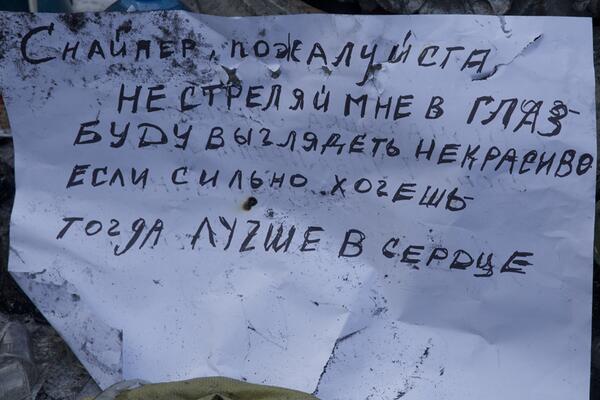 Снайпер, пожалуйста
не стреляй мне в глаз-
буду выглядеть некрасиво
если сильно хочешь-
тогда лучше в сердце